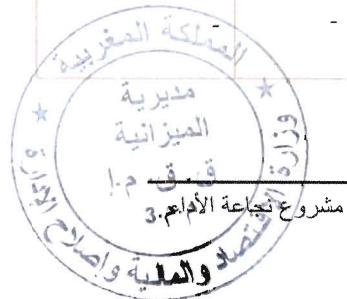 المملكة المغربية
مديرية
الميزانية
ق. ق. م. إ
وزارة الاقتصاد والمالية وإصلاح الإدارة
3. مشروع نجاعة الأداء